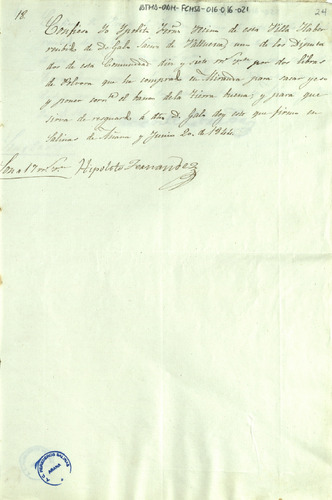 ATHA-DAH-FCMSA-016-016-021
18.
24
Confieso Yo Ypolito Frñz Vecino de esta Villa Haber
recibido de Dn Galo Saenz de Villuerca, uno de los Diputa
dos de esta Comunidad diez y siete rs vn por dos libras
de Polvora que la comprado en Miranda para sacar yeso
y poner el banco de la tierra buena; y para que
sirva de resguardo a dho Dn Galo doy este que firmo en
Salinas de Añana y Junio 20 de 1844.
Son 17 rs vn
Hipolito Fernandez
A. C. PROPIETARIOS SALINAS
AÑANA